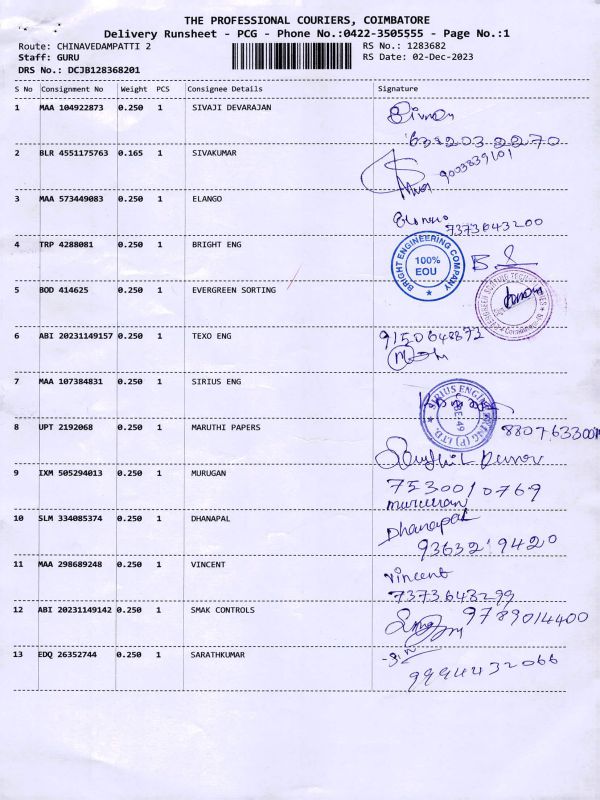 THE PROFESSIONAL COURIERS, COIMBATORE
Delivery Runsheet - PCG - Phone No.:0422-3505555 - Page No.:1
Route: CHINAVEDAMPATTI 2
RS No.: 1283682
Staff: GURU
RS Date: 02-Dec-2023
DRS No.: DCJB128368201
S No Consignment No Weight PCS Consignee Details Signature
1 MAA 104922873 0.250 1 SIVAJI DEVARAJAN
2 BLR 4551175763 0.165 1 SIVAKUMAR
9003839101
3 MAA 573449083 0.250 1 ELANGO
7373643200
4 TRP 4288081 0.250 1 BRIGHT ENG
BRIGHT ENGINEERING COMPANY
100%
EOU
5 BOD 414625 0.250 1 EVERGREEN SORTING
6 ABI 20231149157 0.250 1 TEXO ENG
9150648872
7 MAA 107384831 0.250 1 SIRIUS ENG
SIRIUS ENGINEERING (P) LTD.
8 UPT 2192068 0.250 1 MARUTHI PAPERS
9 IXM 505294013 0.250 1 MURUGAN
7530010769
murugan
10 SLM 334085374 0.250 1 DHANAPAL
Dhanapal
9363219420
11 MAA 298689248 0.250 1 VINCENT
Vincent
7373648299
12 ABI 20231149142 0.250 1 SMAK CONTROLS
9789014400
13 EDQ 26352744 0.250 1 SARATHKUMAR
9994432066